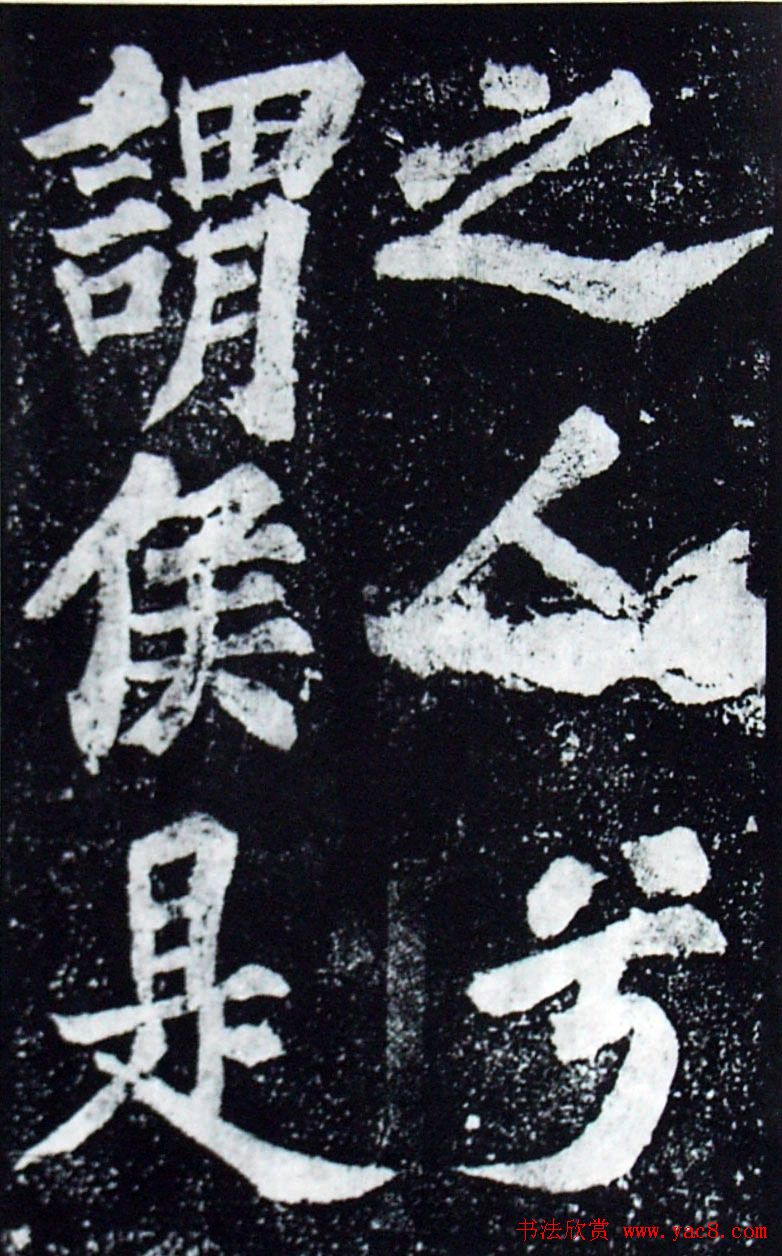 之人兮
謂侯是
书法欣赏 www.yac8.com